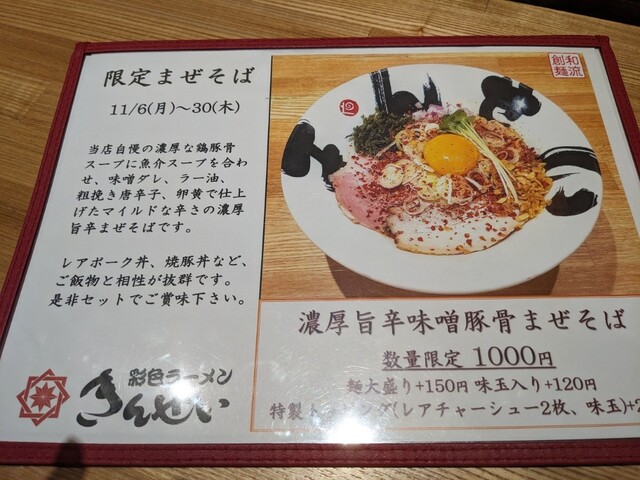 限定まぜそば
11/6(月)～30(木)
当店自慢の濃厚な鶏豚骨
スープに魚介スープを合わ
せ、味噌ダレ、ラー油、
粗挽き唐辛子、卵黄で仕上
げたマイルドな辛さの濃厚
旨辛まぜそばです。
レアポーク丼、焼豚丼など、
ご飯物と相性が抜群です。
是非セットでご賞味下さい。
彩色ラーメン
きんせい
和流
創麺
きんせい
濃厚旨辛味噌豚骨まぜそば
数量限定 1000円
麺大盛り+150円 味玉入り+120円
特製トッピング(レアチャーシュー2枚、味玉)+2